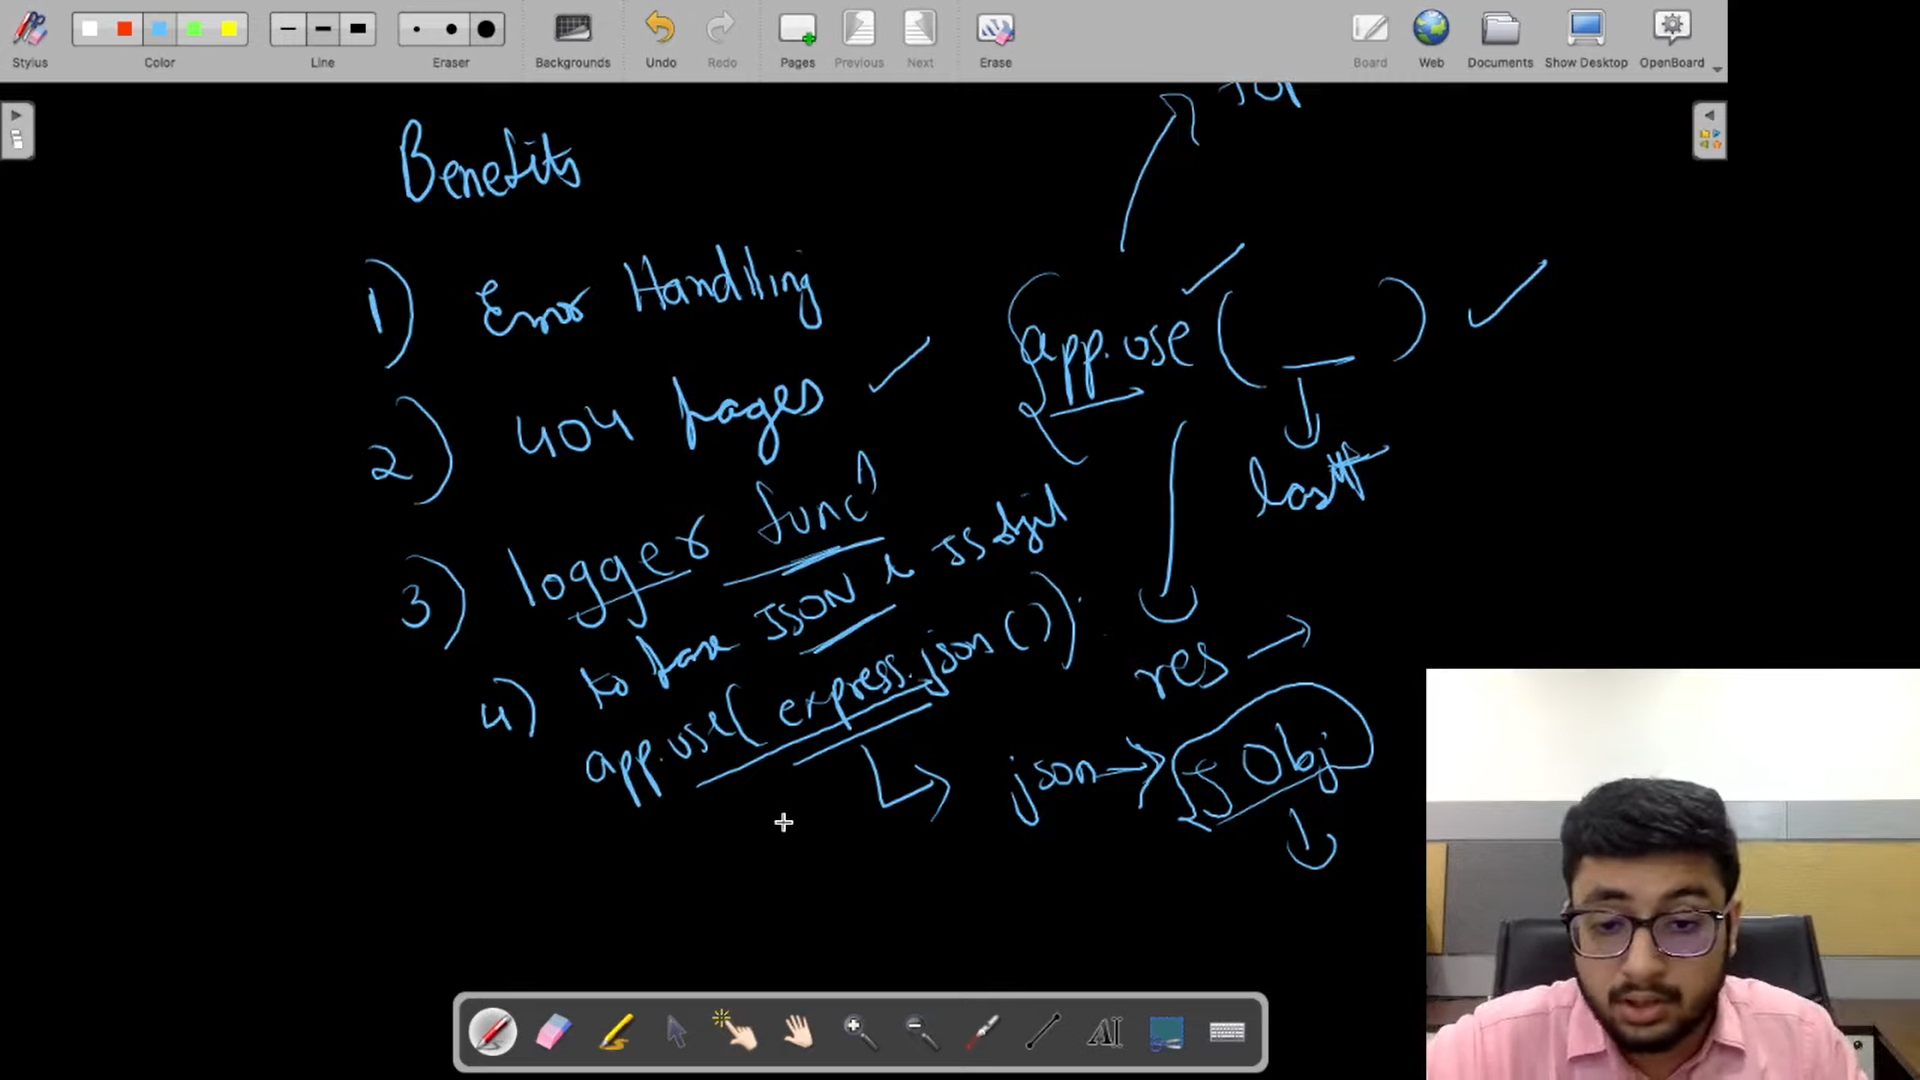 Stylus
Color
Line
Eraser
Backgrounds
Undo
Redo
Pages
Previous
Next
Erase
Board
Web
Documents
Show Desktop
OpenBoard
Benefits
1) Error Handling
2) 404 pages
3) logger func
4) to JSON JS
app.use(express.json())
json → JS Obj
app.use( )
last
res →
AI